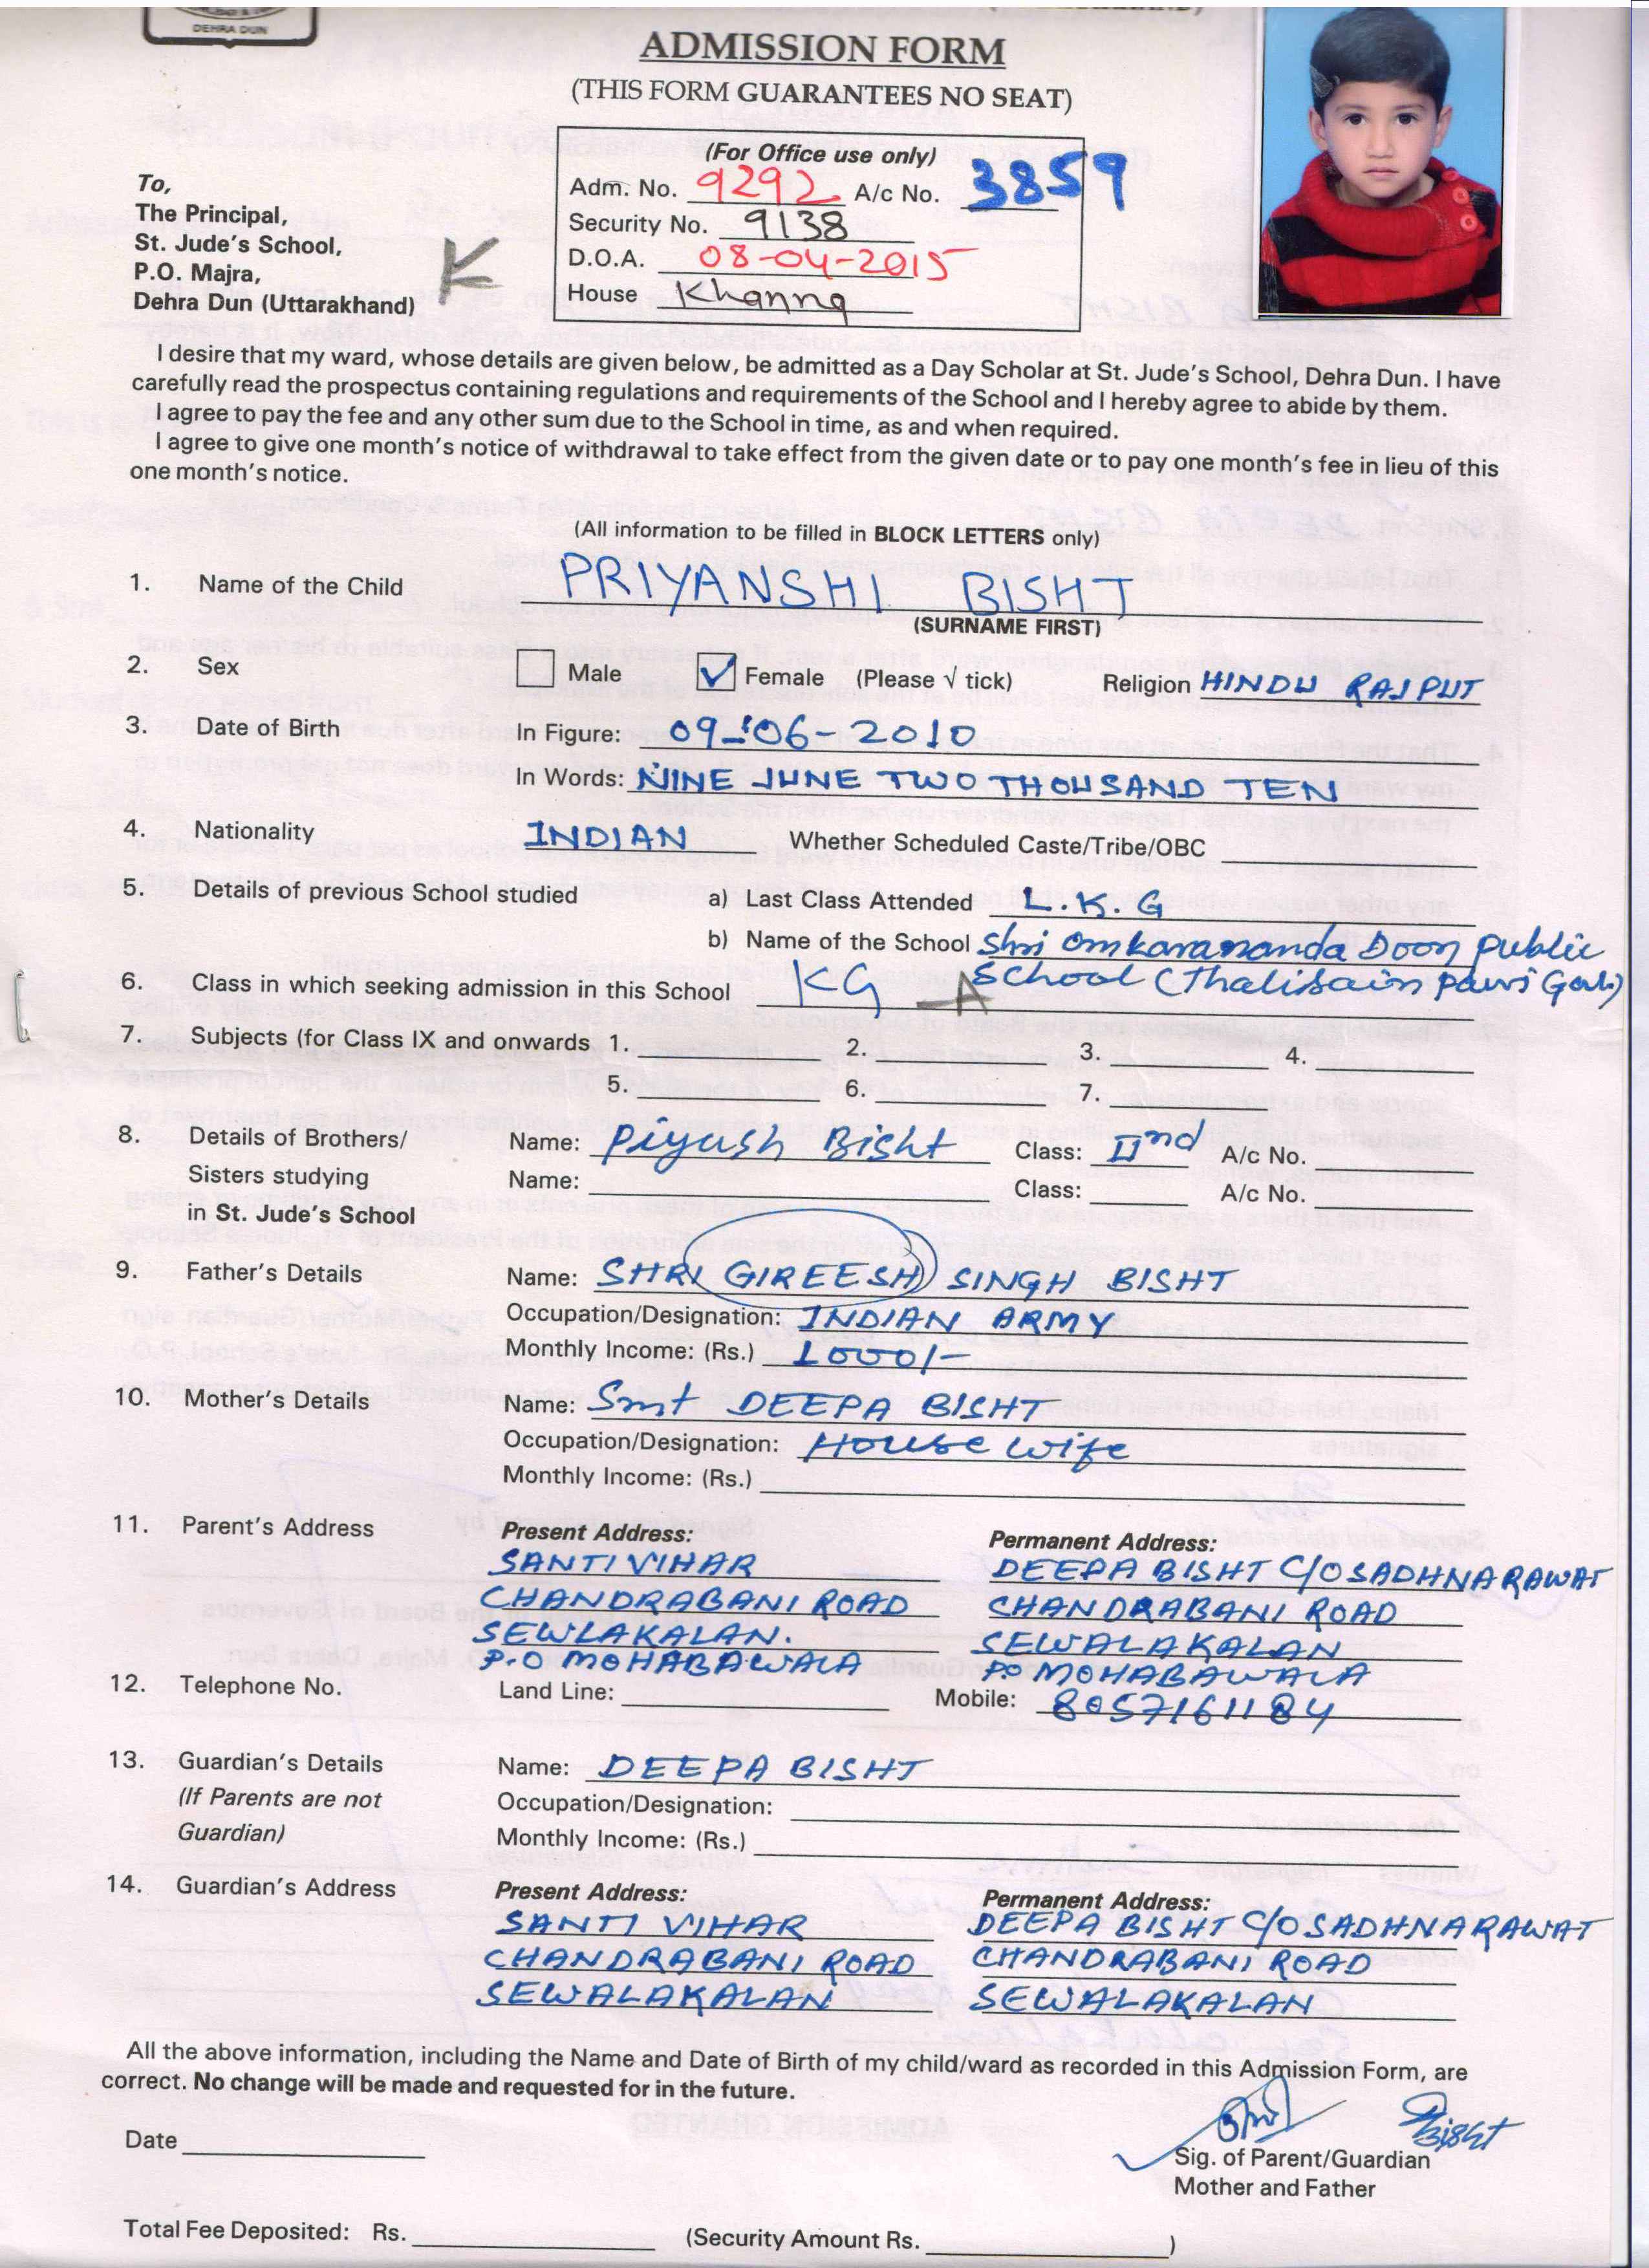 DEHRA DUN
ADMISSION FORM
(THIS FORM GUARANTEES NO SEAT)
(For Office use only)
Adm. No. 9292 A/c No. 3859
Security No. 9138
D.O.A. 08-04-2015
House Khanna
To,
The Principal,
St. Jude's School,
P.O. Majra,
Dehra Dun (Uttarakhand)
K
I desire that my ward, whose details are given below, be admitted as a Day Scholar at St. Jude's School, Dehra Dun. I have
carefully read the prospectus containing regulations and requirements of the School and I hereby agree to abide by them.
I agree to pay the fee and any other sum due to the School in time, as and when required.
I agree to give one month's notice of withdrawal to take effect from the given date or to pay one month's fee in lieu of this
one month's notice.
(All information to be filled in BLOCK LETTERS only)
1. Name of the Child PRIYANSHI BISHT
(SURNAME FIRST)
2. Sex Male Female (Please √ tick) Religion HINDU RAJPUT
3. Date of Birth In Figure: 09-06-2010
In Words: NINE JUNE TWO THOUSAND TEN
4. Nationality INDIAN Whether Scheduled Caste/Tribe/OBC
5. Details of previous School studied a) Last Class Attended L.K.G
b) Name of the School Shri Omkarananda Doon Public
School (Thalisain Pauri Garh)
6. Class in which seeking admission in this School KG - A
7. Subjects (for Class IX and onwards 1. 2. 3. 4.
5. 6. 7.
8. Details of Brothers/ Name: Piyush Bisht Class: IInd A/c No.
Sisters studying Name: Class: A/c No.
in St. Jude's School
9. Father's Details Name: SHRI GIREESH SINGH BISHT
Occupation/Designation: INDIAN ARMY
Monthly Income: (Rs.) 1000/-
10. Mother's Details Name: Smt DEEPA BISHT
Occupation/Designation: House wife
Monthly Income: (Rs.)
11. Parent's Address Present Address: Permanent Address:
SANTI VIHAR DEEPA BISHT C/O SADHNA RAWAT
CHANDRABANI ROAD CHANDRABANI ROAD
SEWLAKALAN. SEWALAKALAN
P.O MOHABAWALA PO MOHABAWALA
12. Telephone No. Land Line: Mobile: 8057161184
13. Guardian's Details Name: DEEPA BISHT
(If Parents are not Occupation/Designation:
Guardian) Monthly Income: (Rs.)
14. Guardian's Address Present Address: Permanent Address:
SANTI VIHAR DEEPA BISHT C/O SADHNA RAWAT
CHANDRABANI ROAD CHANDRABANI ROAD
SEWALAKALAN SEWALAKALAN
All the above information, including the Name and Date of Birth of my child/ward as recorded in this Admission Form, are
correct. No change will be made and requested for in the future.
Bisht
Date
Sig. of Parent/Guardian
Mother and Father
Total Fee Deposited: Rs. (Security Amount Rs. )